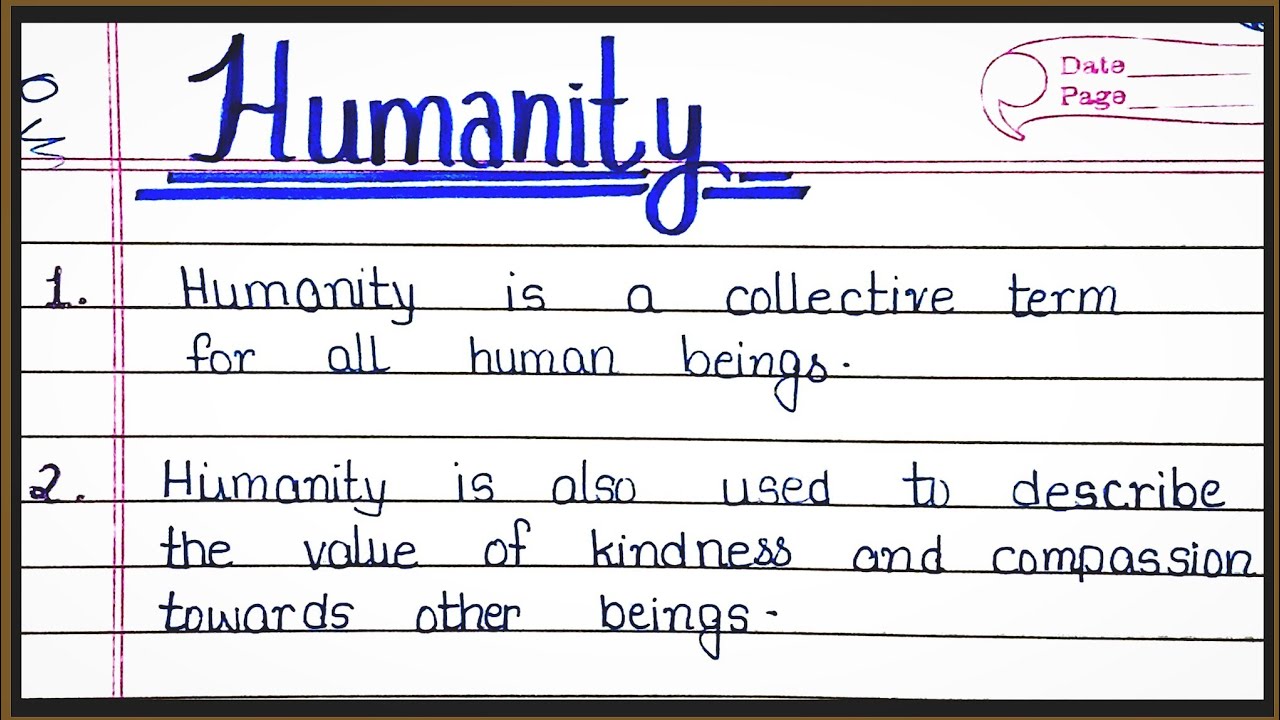 Humanity
Date
Page
1. Humanity is a collective term
for all human beings.
2. Humanity is also used to describe
the value of kindness and compassion
towards other beings.